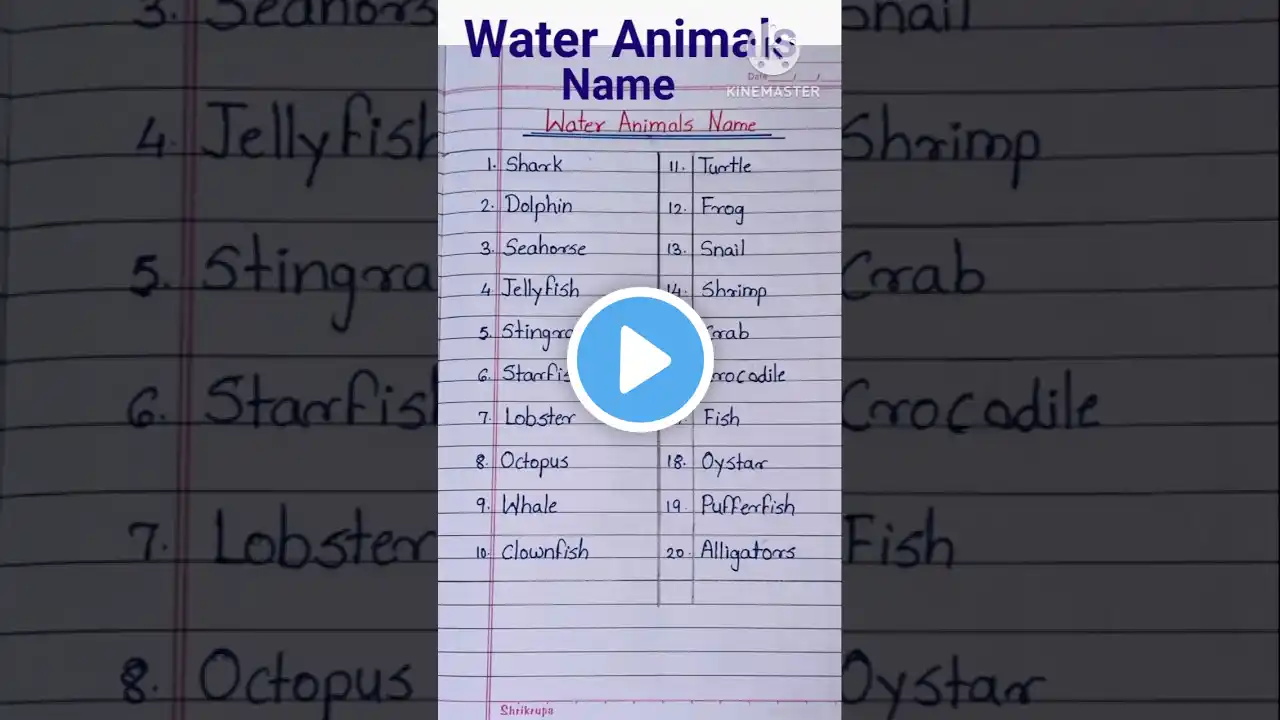 Water Animals
Name
Date
KINEMASTER
Water Animals Name
1. Shark
2. Dolphin
3. Seahorse
4. Jellyfish
5. Stingra
6. Starfis
7. Lobster
8. Octopus
9. Whale
10. Clownfish
11. Turtle
12. Frog
13. Snail
14. Shrimp
Crab
Crocodile
Fish
18. Oystar
19. Pufferfish
20. Alligators
Shrikrupa
3. Seahors
4. Jellyfish
5. Stingra
6. Starfish
7. Lobster
8. Octopus
Snail
Shrimp
Crab
Crocodile
Fish
Oystar